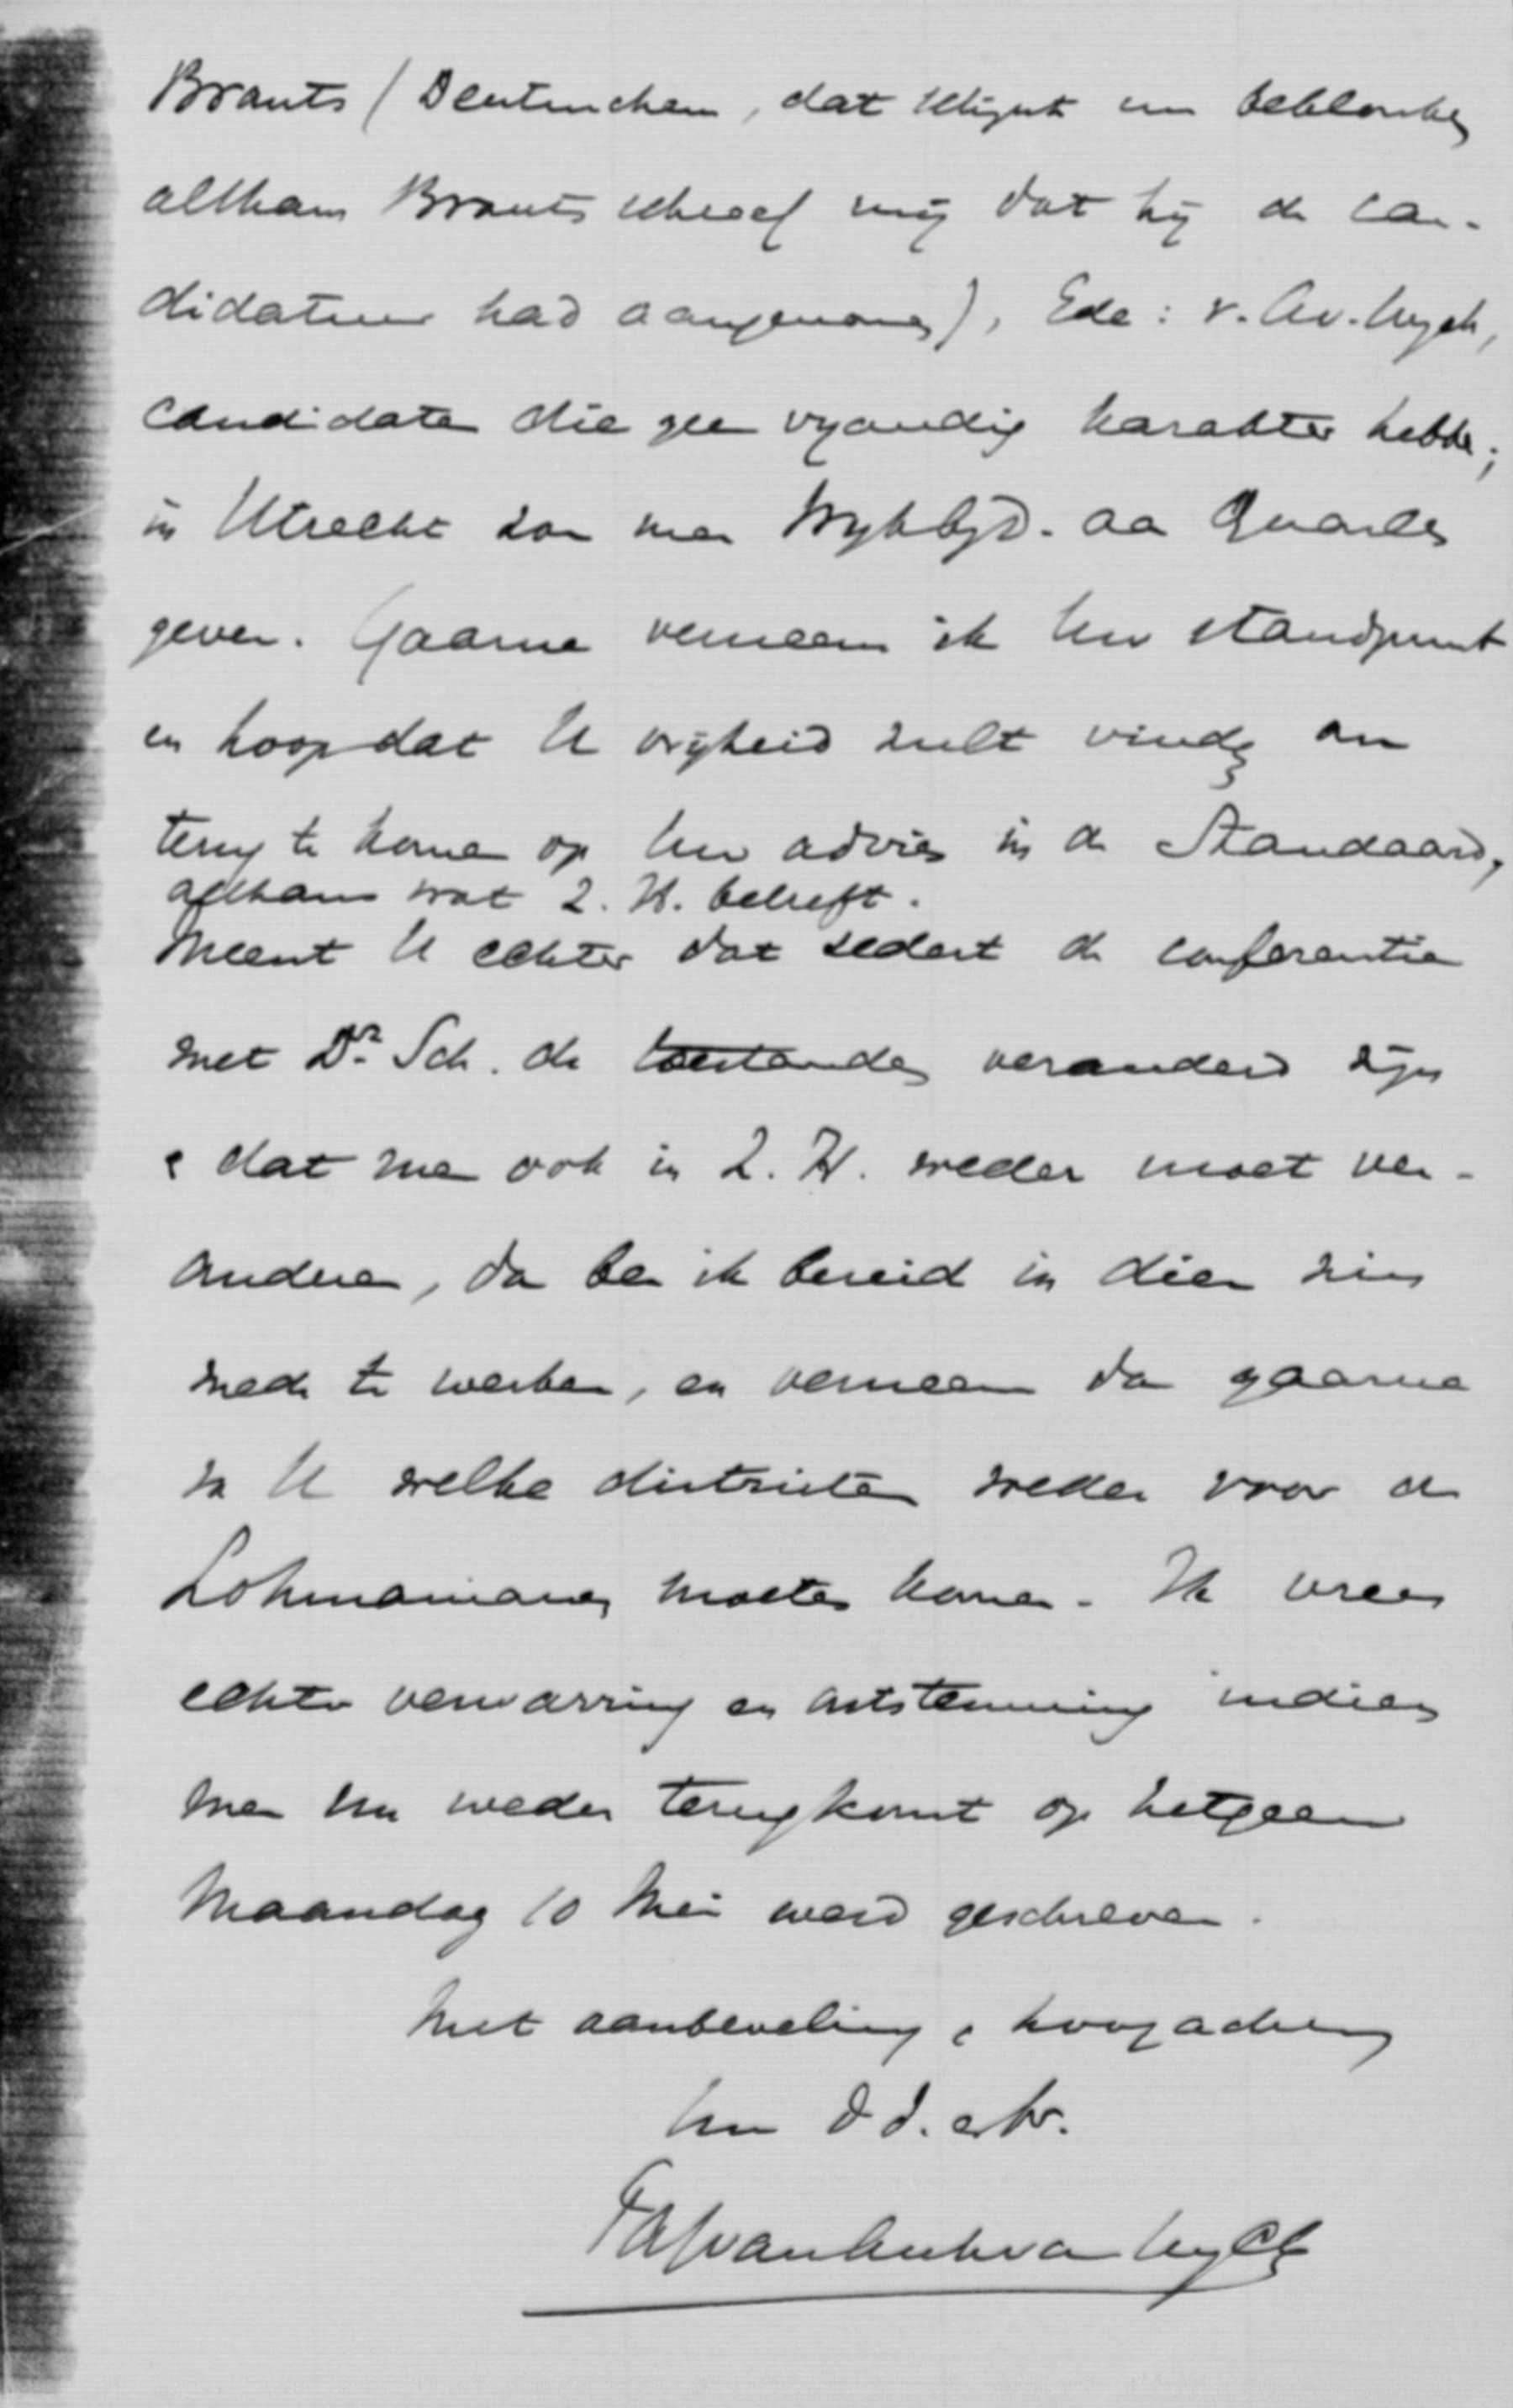 Brants / Deutinchem, dat blijkt nu beklonken
althans Brants schreef mij dat hij de can-
didatuur had aangenomen), Ede: v. As. v. Wijck,
candidaten die geen vijandig karakter hebben;
in Utrecht zou men aan Quarles
geven. Gaarne verneem ik Uw standpunt
en hoop dat U vrijheid zult vinden om
terug te komen op Uw advies in de Standaard,
althans wat Z. H. betreft.
Meent U echter dat sedert de conferentie
met Dr. Sch. de toestanden veranderd zijn
& dat men ook in Z. H. weder moet ver-
anderen, dan ben ik bereid in dien zin
mede te werken, en verneem dan gaarne
van U welke districten weder voor de
Lohmannianen moeten komen. Ik vrees
echter verwarring en ontstemming indien
men nu weder terugkomt op hetgeen
Maandag 10 Mei werd geschreven.
Met aanbeveling & hoogachting
Uw d.d. en br.
van Asch van Wijck